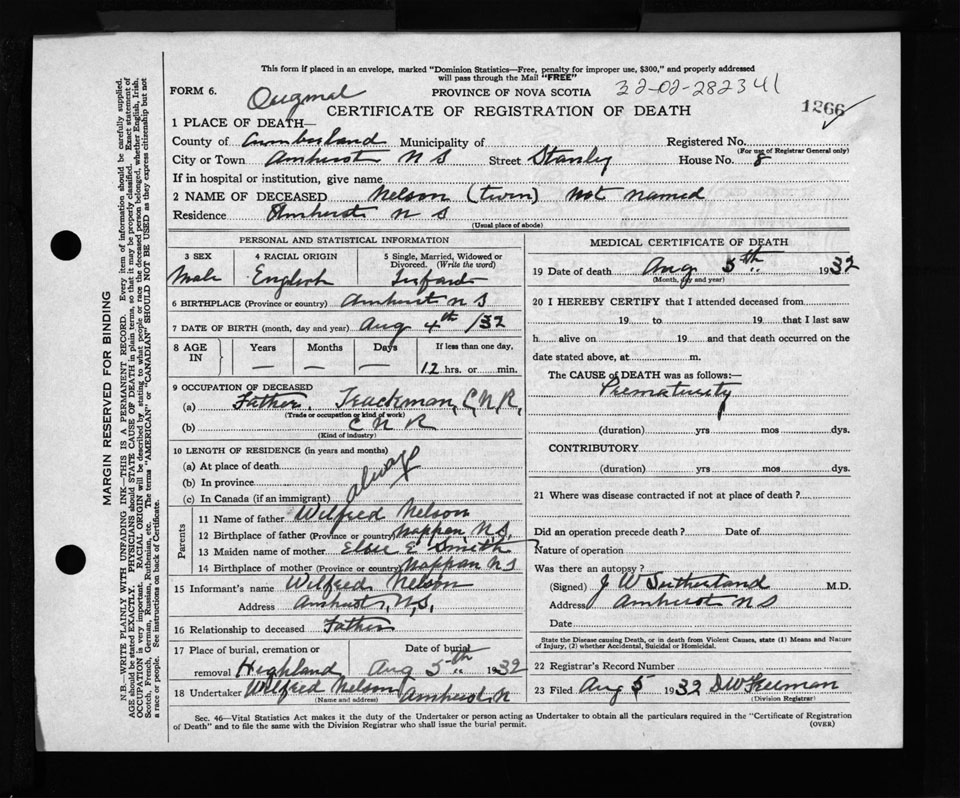 This form if placed in an envelope, marked "Dominion Statistics—Free, penalty for improper use, $300," and properly addressed
will pass through the Mail "FREE"
FORM 6.
PROVINCE OF NOVA SCOTIA
32-02-282341
Original
CERTIFICATE OF REGISTRATION OF DEATH
1266
1 PLACE OF DEATH—
County of Cumberland Municipality of Registered No.
(For use of Registrar General only)
City or Town Amherst N S Street Stanly House No. 8
If in hospital or institution, give name
2 NAME OF DECEASED Nelson (twin) Not Named
Residence Amherst N S
(Usual place of abode)
PERSONAL AND STATISTICAL INFORMATION
3 SEX 4 RACIAL ORIGIN 5 Single, Married, Widowed or Divorced. (Write the word)
Male English Infant
6 BIRTHPLACE (Province or country) Amherst N S
7 DATE OF BIRTH (month, day and year) Aug 4th /32
8 AGE IN Years Months Days If less than one day,
— — — 12 hrs. or min.
9 OCCUPATION OF DECEASED
(a) Father, Trackman, C,N,R,
(Trade or occupation or kind of work)
(b) C N R
(Kind of industry)
10 LENGTH OF RESIDENCE (in years and months)
(a) At place of death
(b) In province
always
(c) In Canada (if an immigrant)
Parents
11 Name of father Wilfred Nelson
12 Birthplace of father (Province or country) Nappan N,S,
13 Maiden name of mother Elsie E Smith
14 Birthplace of mother (Province or country) Nappan N S
15 Informant's name Wilfred Nelson
Address Amherst, N,S,
16 Relationship to deceased Father
17 Place of burial, cremation or removal Highland
Date of burial Aug 5th 1932
18 Undertaker Wilfred Nelson Amherst, N
(Name and address)
MEDICAL CERTIFICATE OF DEATH
19 Date of death Aug 5th 1932
(Month, day and year)
20 I HEREBY CERTIFY that I attended deceased from
19 to 19 that I last saw
h alive on 19 and that death occurred on the
date stated above, at m.
The CAUSE of DEATH was as follows:—
Prematurity
(duration) yrs mos dys.
CONTRIBUTORY
(duration) yrs mos dys.
21 Where was disease contracted if not at place of death?
Did an operation precede death? Date of
Nature of operation
Was there an autopsy?
(Signed) J W Sutherland M.D.
Address Amherst N S
Date
State the Disease causing Death, or in death from Violent Causes, state (1) Means and Nature
of Injury, (2) whether Accidental, Suicidal or Homicidal.
22 Registrar's Record Number
23 Filed Aug 5 1932 DW Freeman
(Division Registrar)
Sec. 46—Vital Statistics Act makes it the duty of the Undertaker or person acting as Undertaker to obtain all the particulars required in the "Certificate of Registration
of Death" and to file the same with the Division Registrar who shall issue the burial permit.
(OVER)
MARGIN RESERVED FOR BINDING
N.B.—WRITE PLAINLY WITH UNFADING INK—THIS IS A PERMANENT RECORD. Every item of information should be carefully supplied.
AGE should be stated EXACTLY. PHYSICIANS should STATE CAUSE OF DEATH in plain terms, so that it may be properly classified. Exact statement of
OCCUPATION is very important. RACIAL ORIGIN will be described by stating to what people or race the deceased person belonged, whether English, Irish,
Scotch, French, German, Russian, Ruthenian, etc. The terms "AMERICAN" or "CANADIAN" SHOULD NOT BE USED as they express citizenship but not
a race or people. See instructions on back of Certificate.